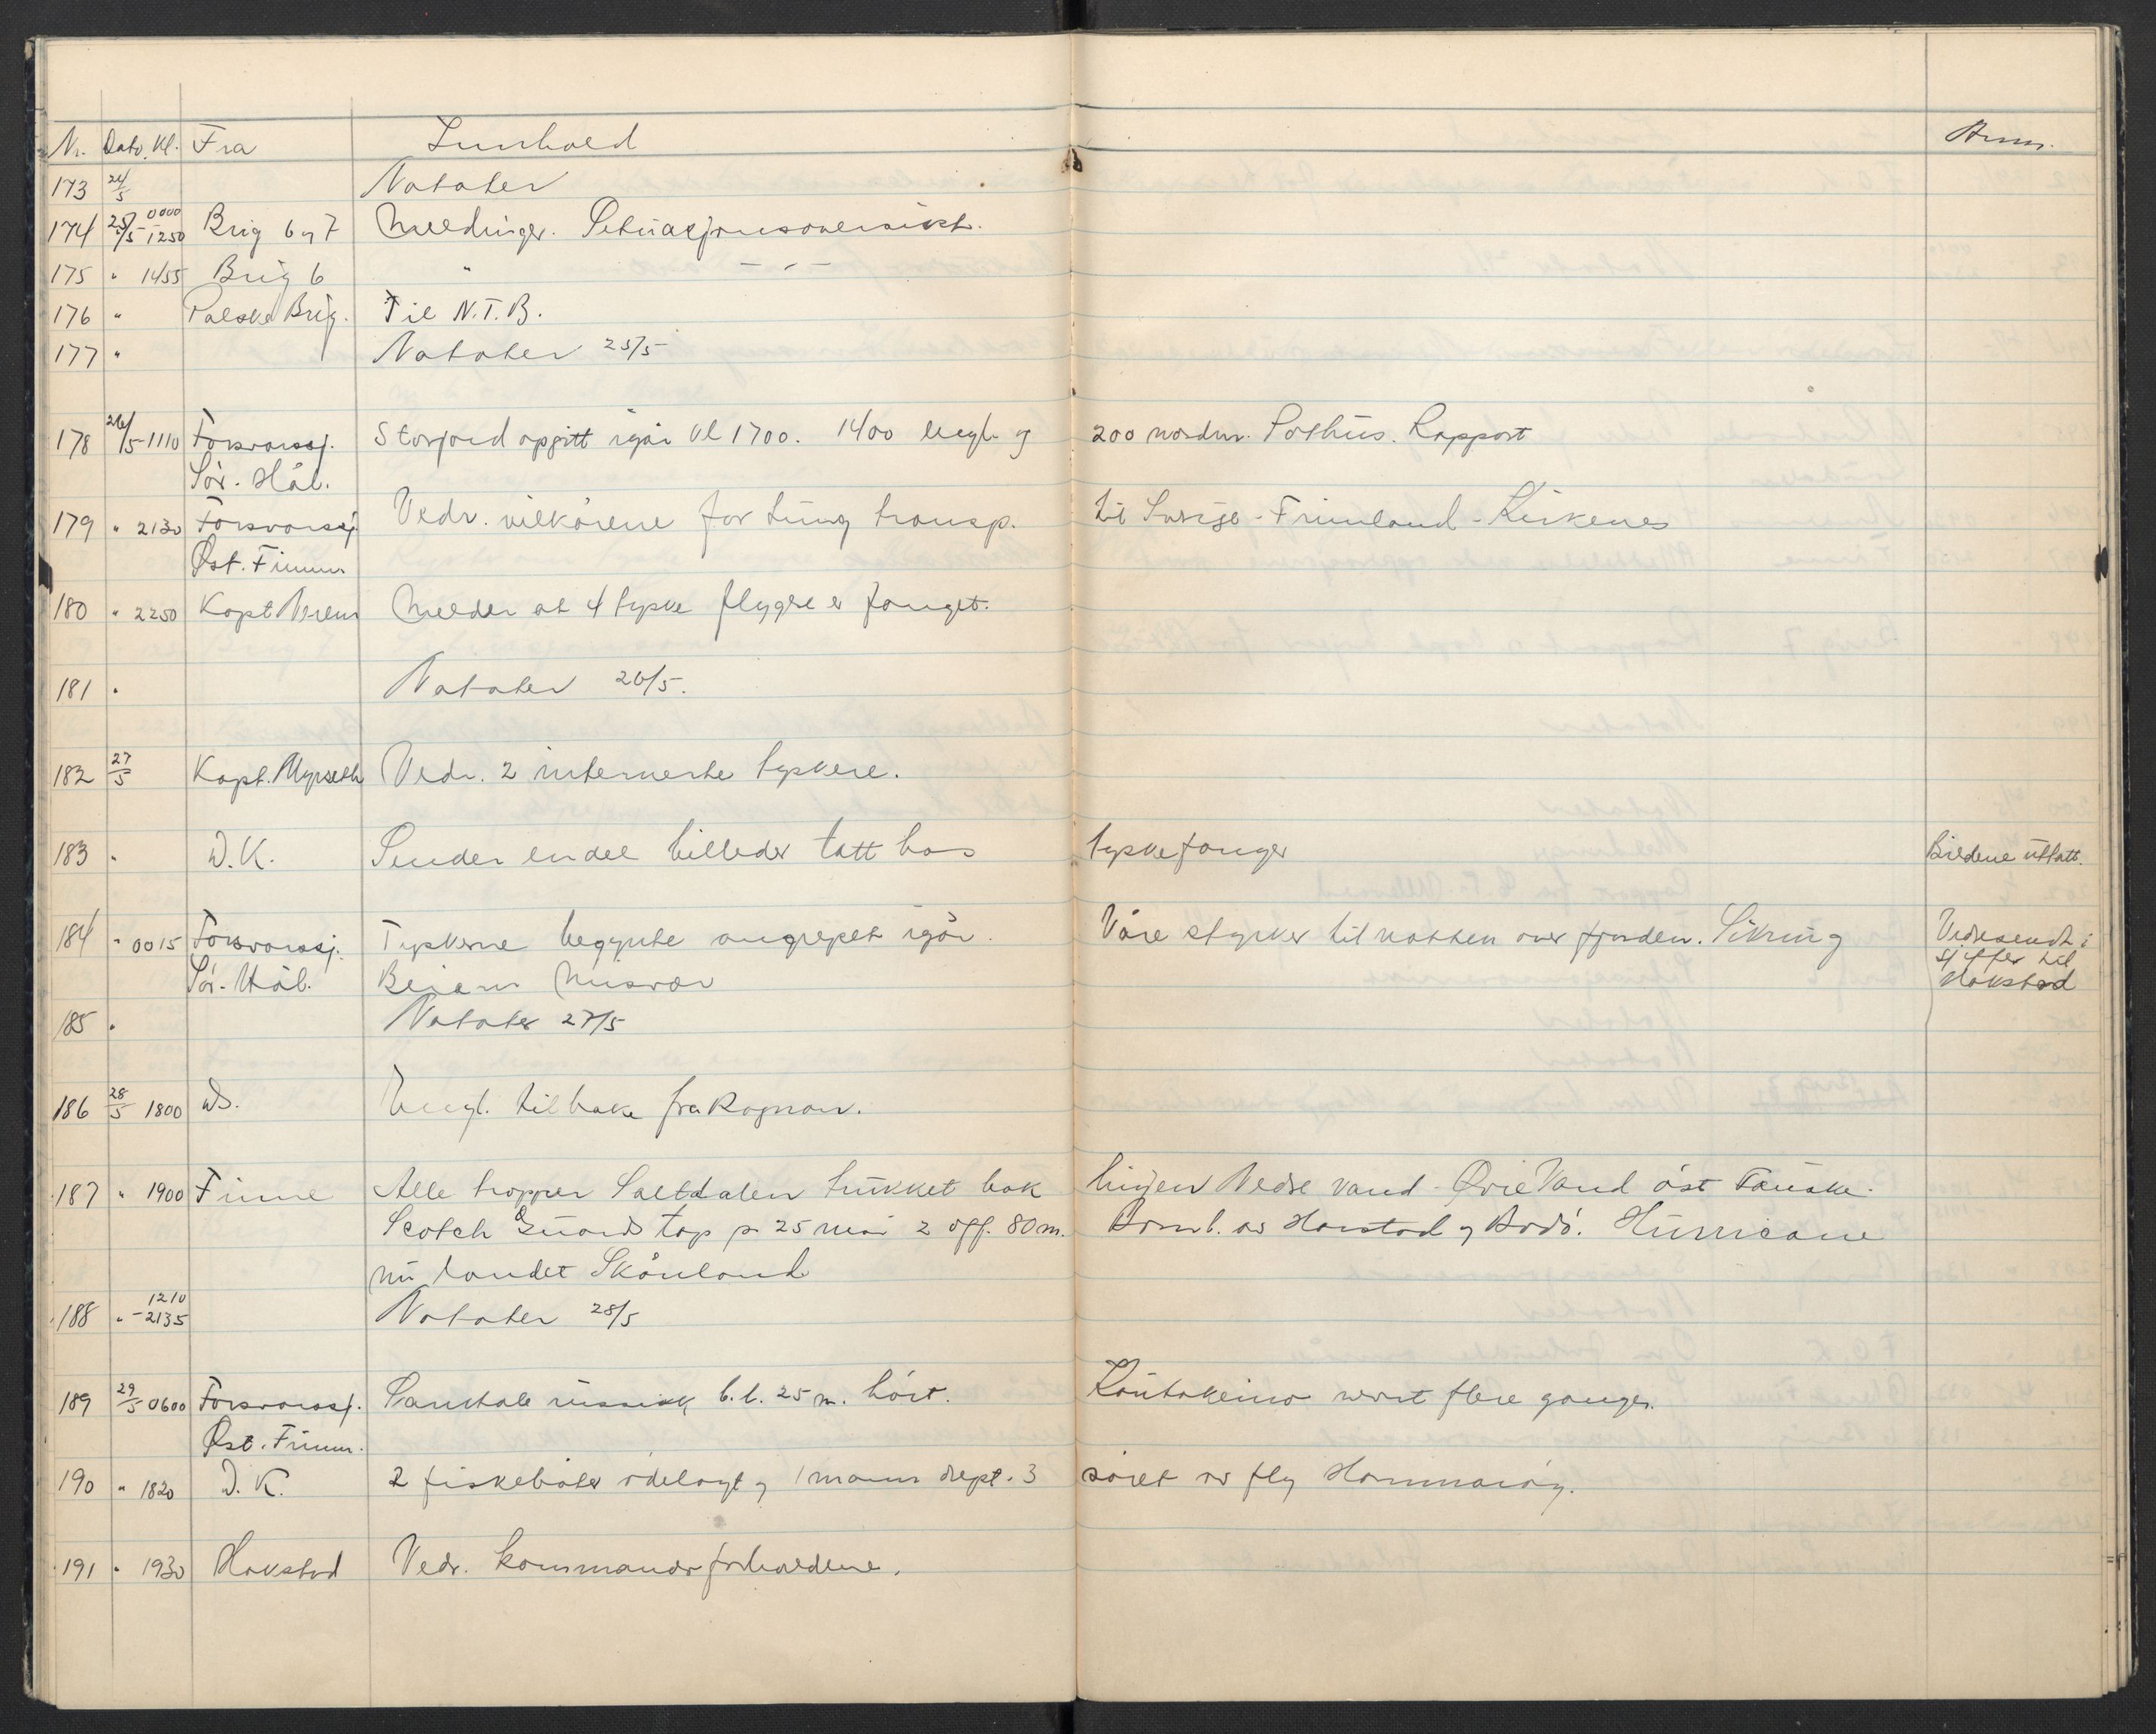 Nr. Dato. Kl. Fra Innhold Anm.
173 24/5 Notater
174 25/5 0000 1250 Brig 6 og 7 Meldinger. Situasjonsoversikt.
175 " 1455 Brig 6 " — " —
176 " Polske Brig. Til N.T.B.
177 " Notater 25/5
178 26/5 1110 Forsvarssj. Storjord opgitt igår kl 1700. 1400 engl. og 200 nordm. Pothus. Rapport
Sør-Hål.
179 " 2130 Forsvarssj. Vedr. vilkårene for tung transp. til Sverige - Finnland - Kirkenes
Øst. Finnm.
180 " 2250 Kapt. Melder at 4 tyske flygere er fanget.
181 " Notater 26/5.
182 27/5 Kapt. Myrseth Vedr. 2 internerte tyskere.
183 " D.K. Sender endel billeder tatt hos tyske fanger Bildene uttatt.
184 " 0015 Forsvarssj. Tyskerne begynte angrepet igår. Våre styrker til natten over fjorden. Sikring Videresendt i
Sør-Hål. Beiarn Misvær siffer til
Hokstad
185 " Notater 27/5
186 28/5 1800 Ds. Engl. tilbake fra Rognan.
187 " 1900 Finne Alle tropper Saltdalen trukket bak linjen Nedre vand - Øvre Vand øst Fauske.
Scotch Guards tap pr 25 mai 2 off. 80 m. Bomb. av Harstad og Bodø. Hurricane
nu landet Skånland
188 " 1210 - 2135 Notater 28/5
189 29/5 0600 Forsvarssj. Samtale russisk b.l. 25 m. hørt. Kautokeino nevnt flere ganger.
Øst. Finnm.
190 " 1820 D.K. 2 fiskebåter ødelagt og 1 mann drept. 3 såret av fly Hammarøy.
191 " 1930 Hokstad Vedr. kommandoforholdene.